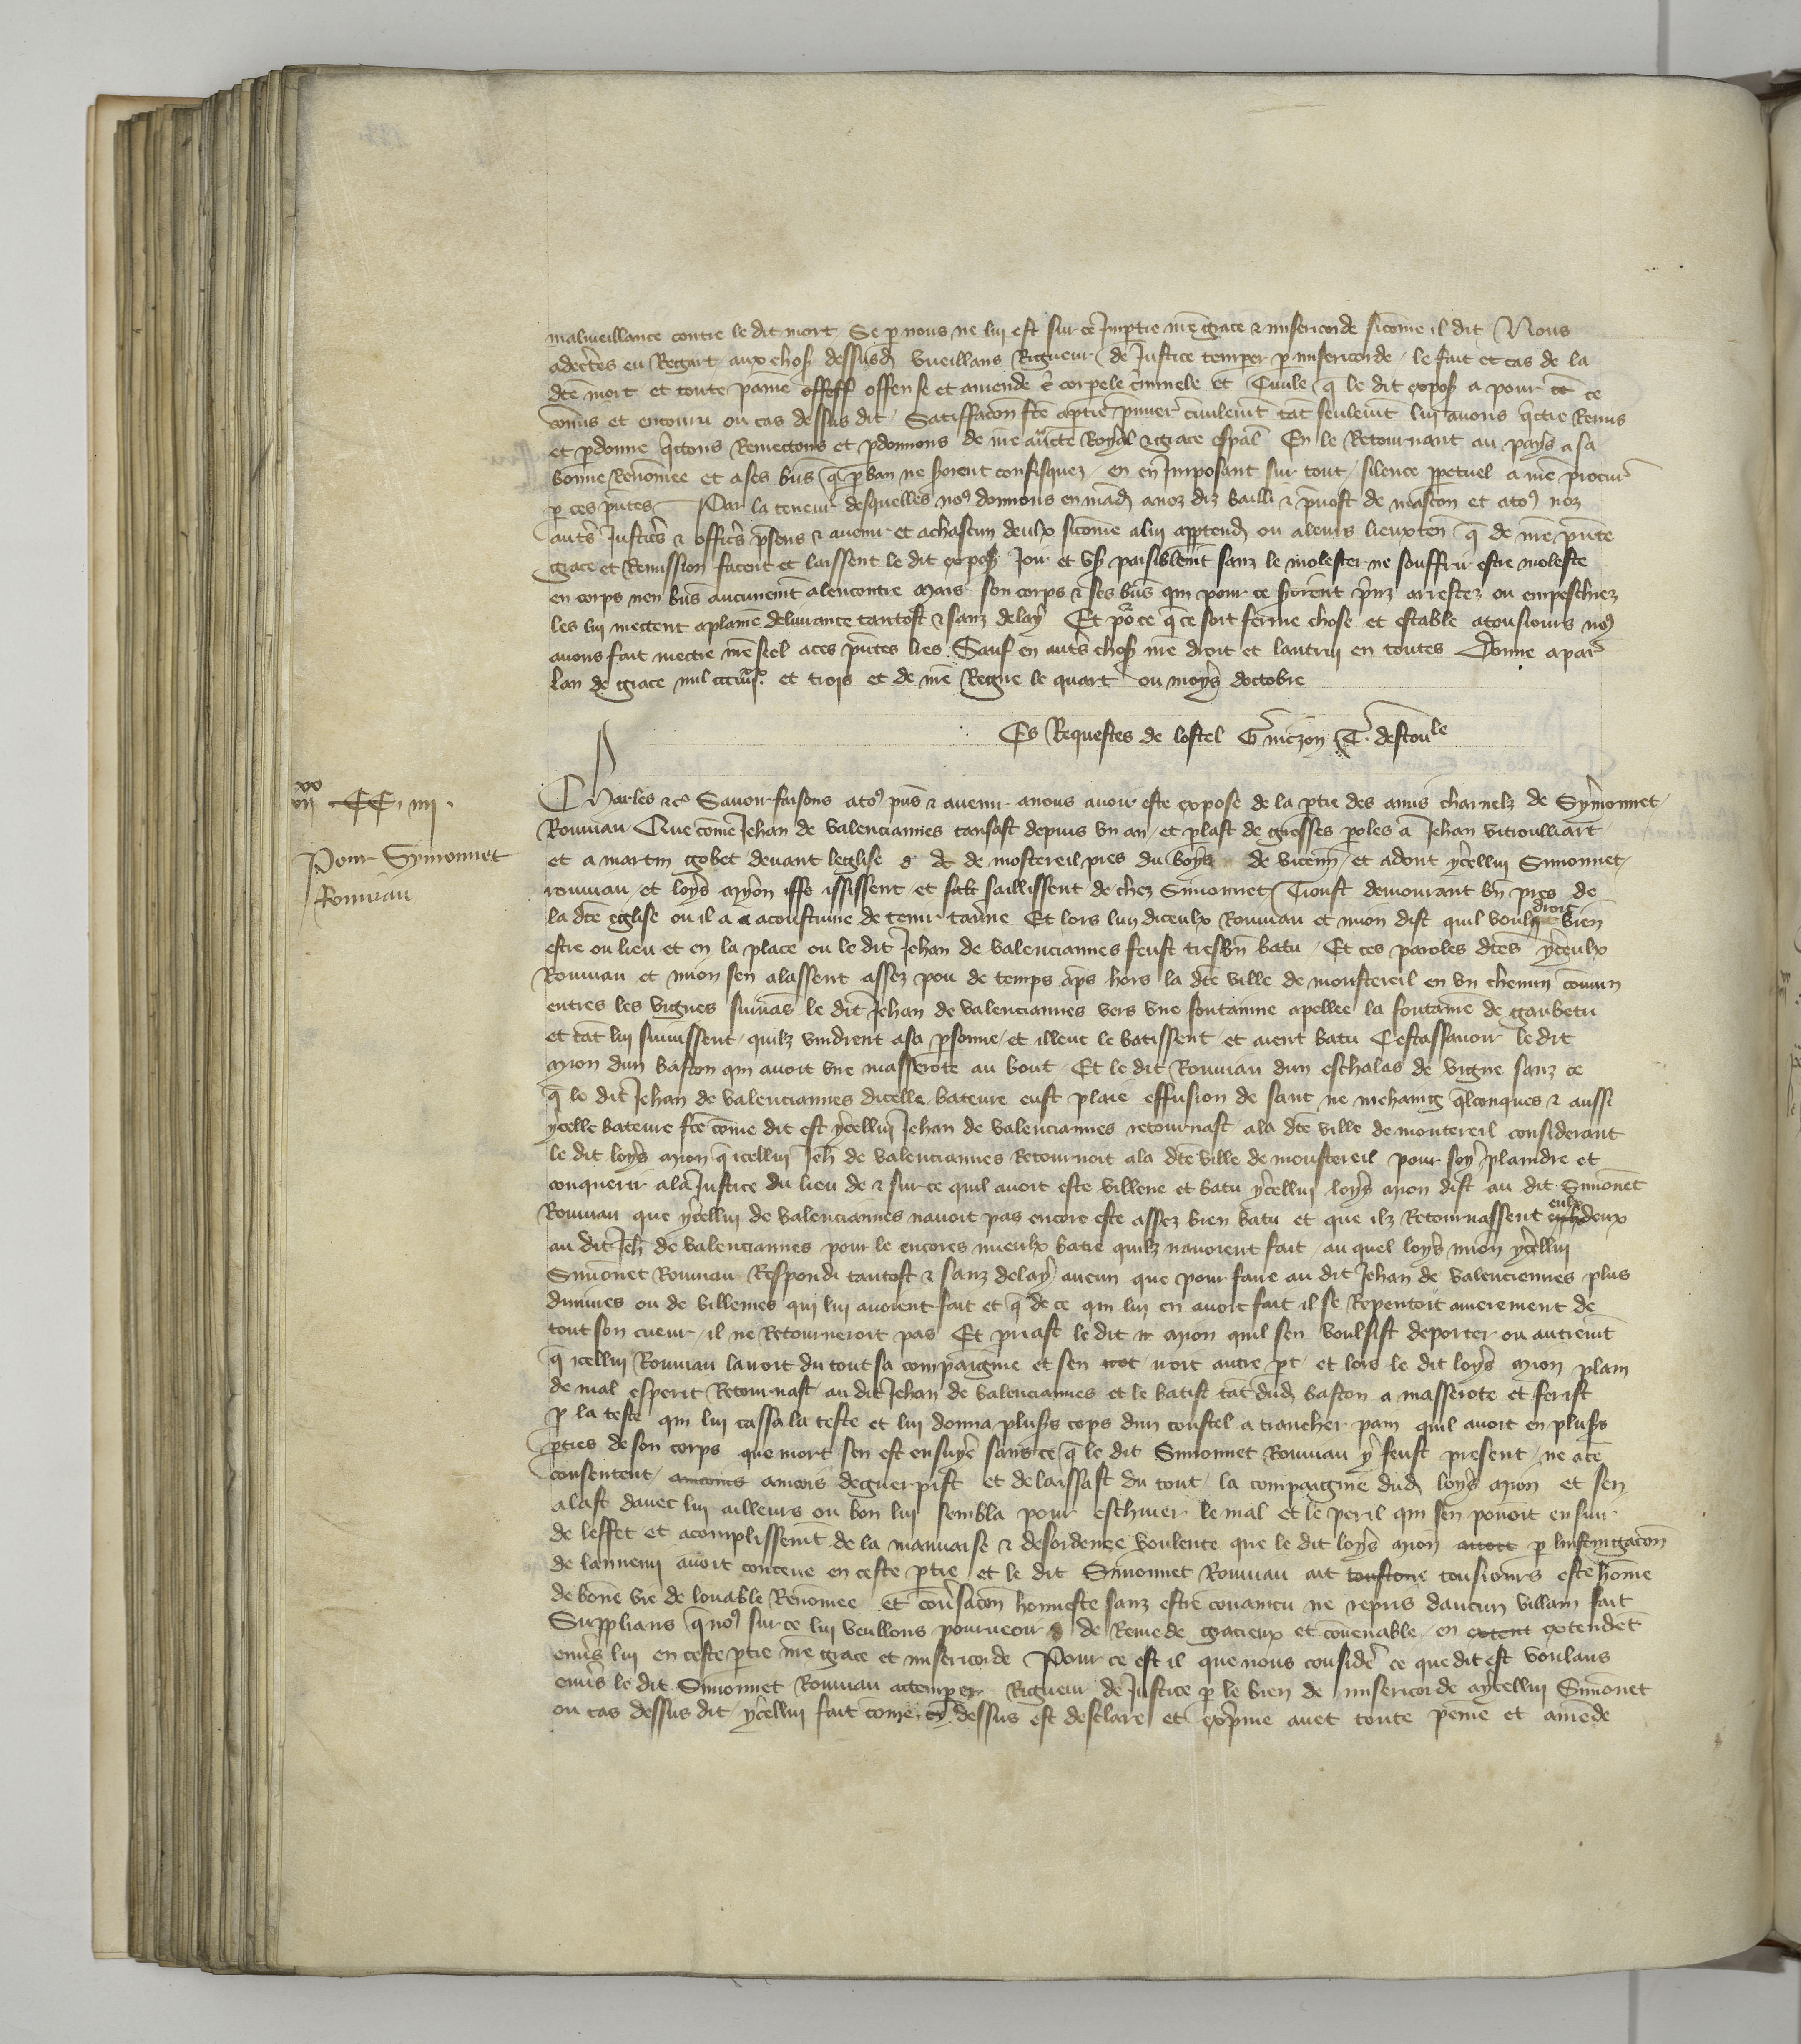 malvueillance contre le dit mort Se p nous ne lui est sur ce Impartie nre grace & misericorde sicome il dit Nous
adcertes eu Regart aux choses dessusd vueillans Rigueur de Justice temper p misericorde le fait et cas de la
dte mort et toute paine offeff offense et amende corpele criminele et Civile q le dit expos a pour ce
comis et encouru ou cas dessus dit Satisfaccon fte a ptie pmier civilemt tat seulemt lui avons qctie Remis
et pdonne qctons Remectons et pdonnons de nre aucte Royal & grace espal En le Retournant au pays a sa
bonne Renomee et a ses bns q p ban ne soient confisquez en en Imposant sur tout silence ppetuel a nre procur
p ces pntes Par la teneur desquelles nos donnons en mad a noz diz bailli & pvost de mascon et a tos noz
auts Justics & offics psens & avenir et a chascun deulx sicome a lui apptend ou a leurs lieuxten q de nre pnte
grace et Remission facent et laissent le dit expos Joir et us paisiblemt sanz le molester ne souffrir estre moleste
en corps nen bns aucunemt alencontre Mais son corps & ses bns qui pour ce seroient prinz arrestez ou empeschiez
les lui mectent a plaine delivrance tantost & sanz delay Et po ce q ce soit ferme chose et estable a tousiours nos
avons fait mectre nre seel a ces pntes lres Sauf en auts choses nre droit et lautrui en toutes Donne a par
Lan de grace mil ccc iiii xx et trois et de nre Regne le quart ou moys doctobre
Es Requestes de lostel G niczon T. destoule
vii xx CC iiii
Pour Symonnet
Rouviau
Charles &c Savoir faisons a tos pns & avenir a nous avoir este expose de la ptie des amis charnelz de Symonnet
Rouviau Que come Jehan de valenciannes tansast depuis un an et plast de grosses poles a Jehan vitoulliart
et a martin gobet devant leglise de mostereil pres du boys de vicenn et adont ycellui Simonnet
rouviau et loys myon isse ississent et salt saillissent de chez Simonnet Tioust demourant bn pres de
la dte eglise ou il a a acoustume de tenir tavne Et lors lun diceulx Rouviau et mion dist quil vouldroit bien
estre ou lieu et en la place ou le dit Jehan de valenciannes feust tresbn batu Et ces paroles dtes yceulx
Rouviau et mion sen alassent assez pou de temps aps hors la dte ville de moustereil en un chemin comun
entres les vignes suivas le dit Jehan de valenciannes vers une fontainne apellee la fontaine de gaubetu
et tat lui suivissent quilz vindrent a sa psonne et illeuc le batissent et aient batu Cestassavoir le dit
mion dun baston qui avoit une masserote au bout Et le dit Rouviau dun eschalas de vigne sanz ce
q le dit Jehan de valenciannes dicelle bateure eust plaie effusion de sanc ne mehaing qlconques & aussi
ycelle bateure fte come dit est ycellui Jehan de valenciannes retournast a la dte ville de montereil considerant
le dit loys mion q icellui Jeh de valenciannes Retournoit a la dte ville de moustereil pour soy plaindre et
conquerir a la Justice du lieu de & sur ce quil avoit este villene et batu ycellui loys mion dist au dit Simonet
Rouviau que ycellui de valenciannes navoit pas encore este assez bien batu et que ilz Retournassent eulx deux
au dit Jeh de valenciannes pour le encores mieulx batre quilz navoient fait au quel loys mion ycellui
Simonet Rouviau Respondi tantost & sanz delay aucun que pour faire au dit Jehan de valenciennes plus
diniures ou de villenies qui lui avoient fait et q de ce qui lui en avoit fait il se Repentoit amerement de
tout son cueur il ne Retourneroit pas Et priast le dit mion quil sen voulsist deporter ou autremt
q icellui Rouviau lairoit du tout sa compaignie et sen iroit autre pt et lors le dit loys mion plain
de mal esperit Retournast au dit Jehan de valenciannes et le batist tat dud baston a masserote et ferist
p la teste qui lui cassa la teste et lui donna plusrs cops dun coustel a trancher pain quil avoit en plusrs
pties de son corps que mort sen est ensuye sans ce q le dit Simonnet Rouviau y feust present ne a ce
consentent ancoiis ancois deguerpist et delaissast du tout la compaignie dud loys mion et sen
alast davec lui ailleurs ou bon lui sembla pour eschiver le mal et le peril qui sen povoit ensuir
de leffet et acomplissemt de la mauvaise & desordenee voulente que le dit loys mion avoit p linstinigacon
de lannemi avoit conceue en ceste ptie et le dit Simonnet Rouviau ait toustous tousiours este home
de bone vie de louable Renomee et covsacon honneste sanz estre convaincu ne repris daucun villain fait
Supplians q nos sur ce lui veullons pourveoir de Remede gracieux et covenable en extent extendet
envs lui en ceste ptie nre grace et misericorde Pour ce est il que nous consider ce que dit est voulans
envs le dit Simonnet Rouviau attemper Rigueur de Justice p le bien de misericorde a ycellui Simonet
ou cas dessus dit ycellui fait come cy dessus est desclare et exprime avec toute peine et amede